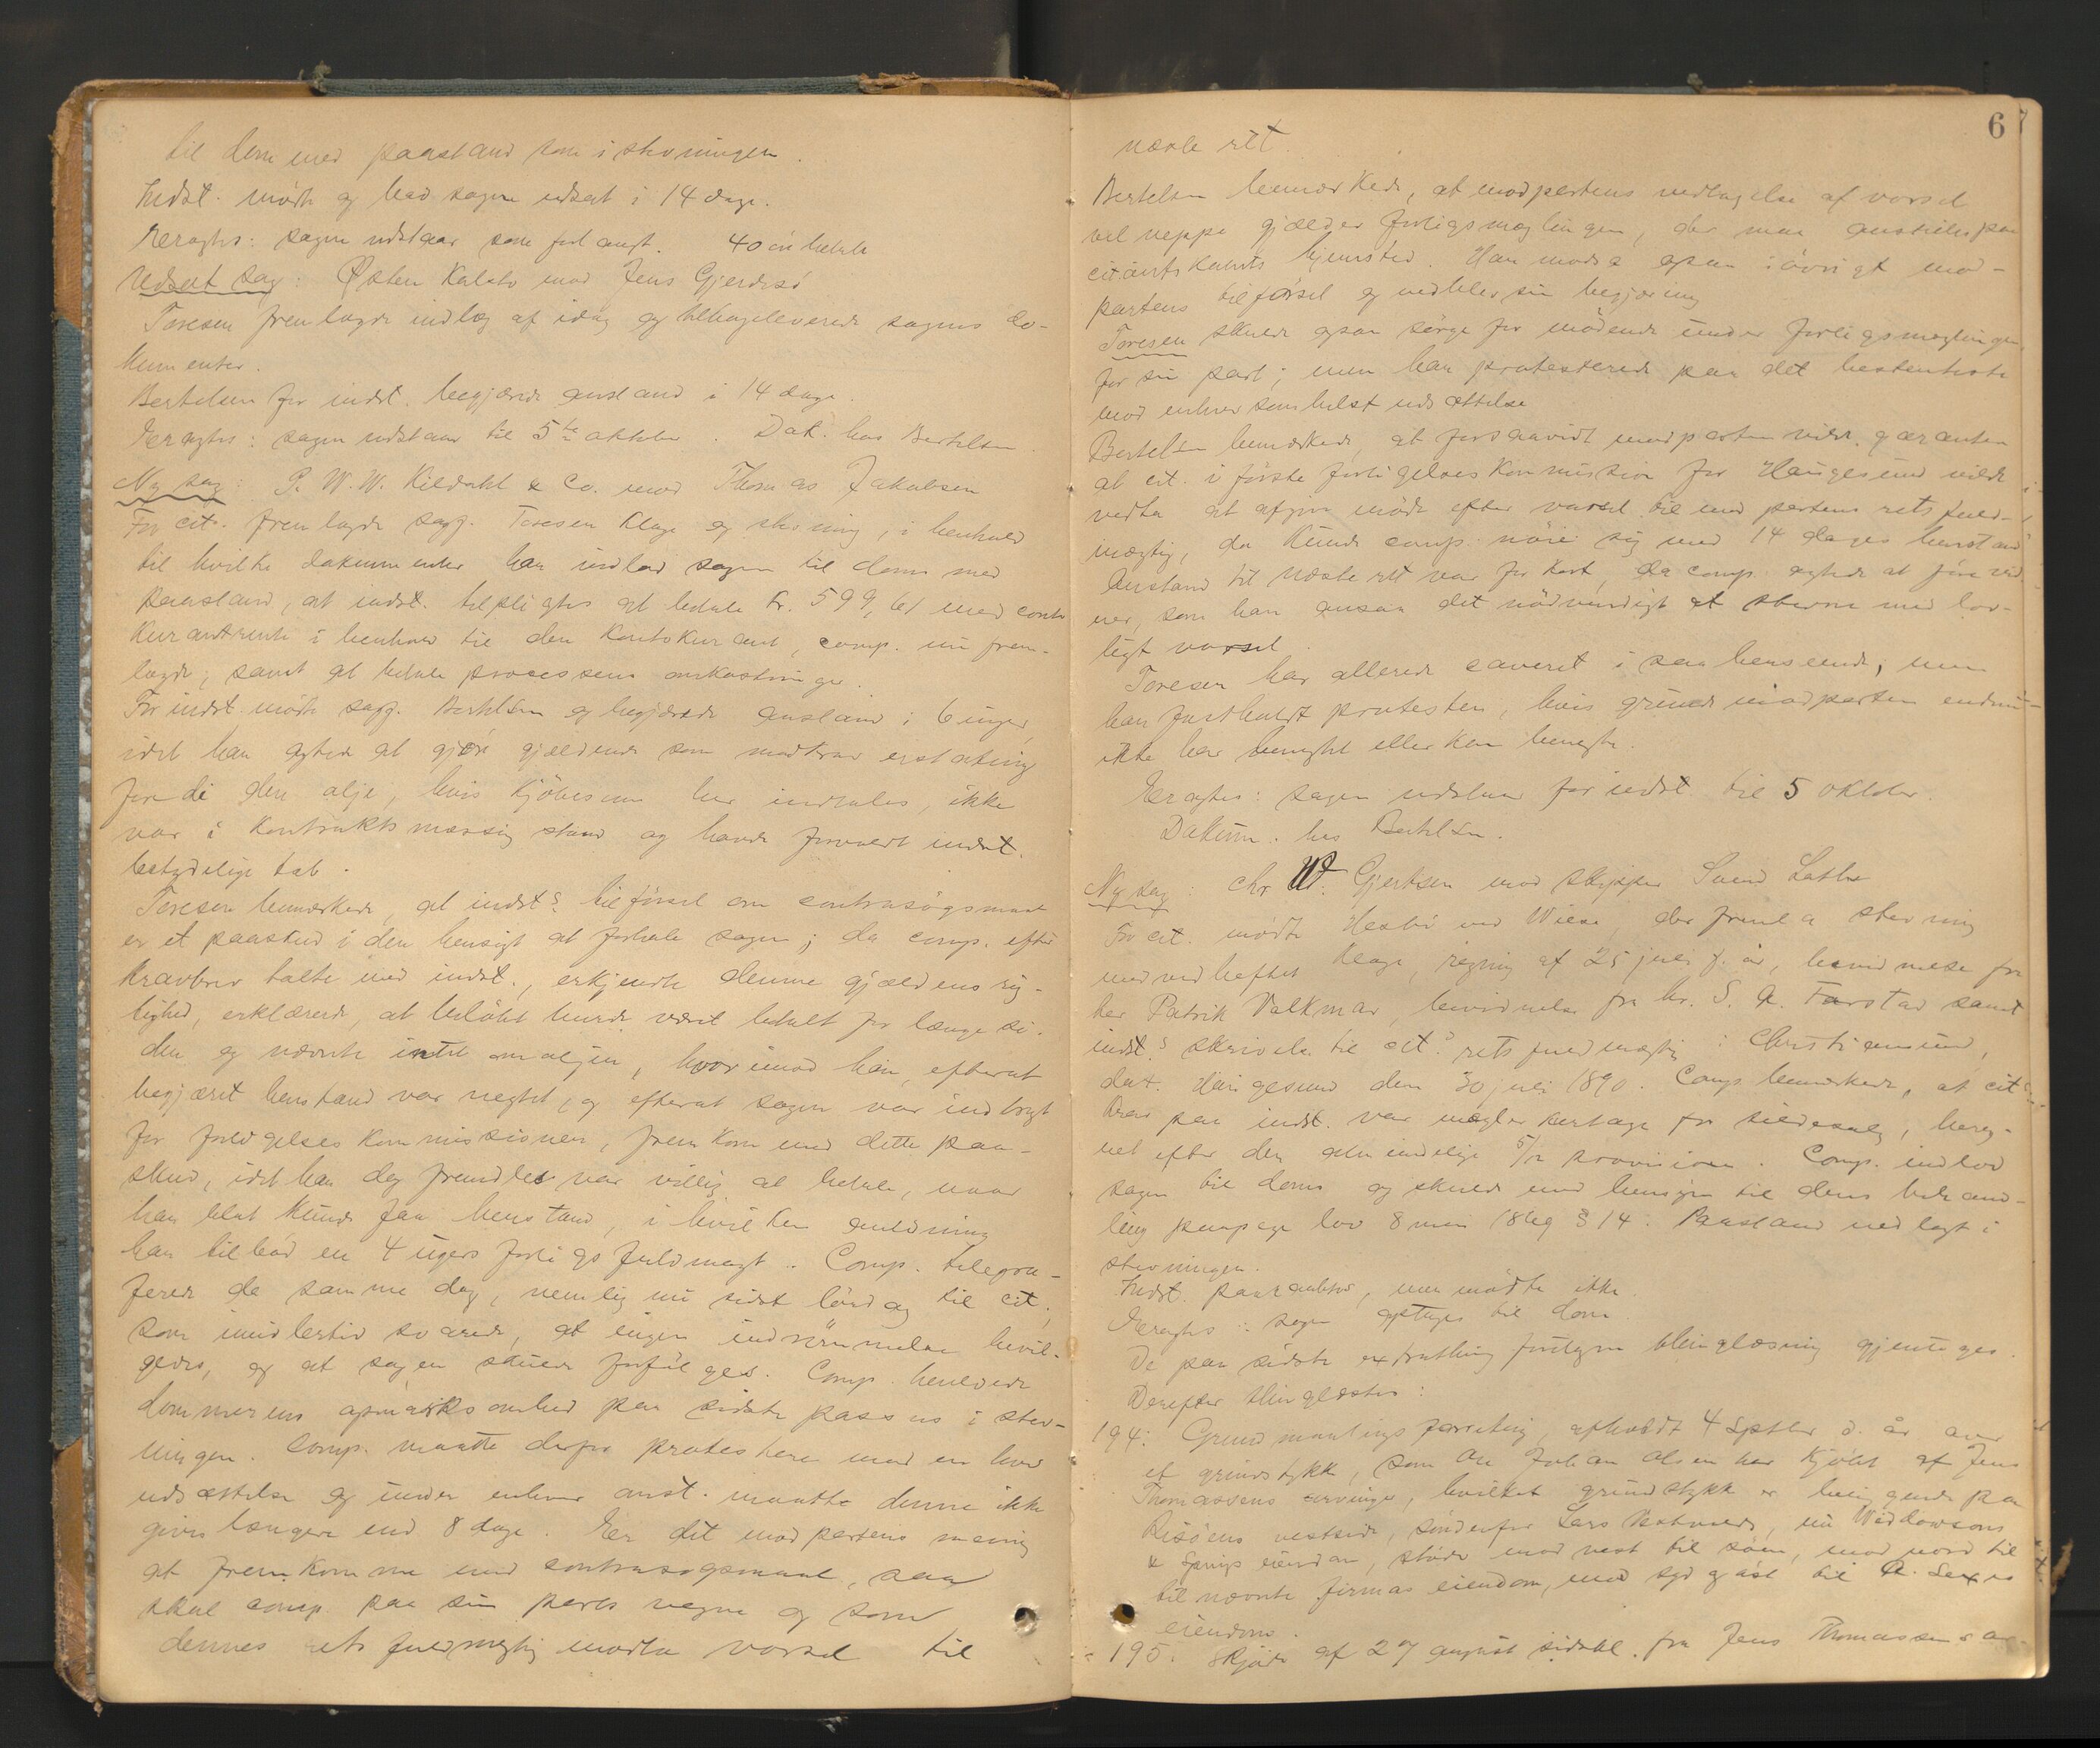 til dom med paastand som i stevningen.
Indst. mødte og bad sagen udsat i 14 dage.
Eragtes: sagen udstaar som forlangt. 40 öre betalt
Udsat sag: Østen Kalstø mod Jens Gjerdesø
Toresen fremlagde indlæg af idag og tilbageleverede sagens do-
kumenter.
Bertelsen for indst. begjærede anstand i 14 dage
Eragtes: sagen udstaar til 5te oktober. Dok. hos Bertelsen.
Ny sag: P. W. W. Kildahl & Co. mod Thomas Jakobsen
For cit. fremlagde sagf. Toresen klage og stevning, i henhold
til hvilke dokumenter han indlod sagen til doms med
paastand, at indst. tilpligtes at betale Kr. 599,61 med conto
kurantrente i henhold til den kontokurant, comp. nu frem-
lagde, samt at betale processens omkostninger.
For indst. mødte sagf. Bertelsen og begjærede anstand i 6 uger,
idet han agted at gjøre gjældende som modkrav erstatning
fordi den olje, hvis kjöbesum her indtales, ikke
var i kontraktsmæssig stand og havde forvoldt indst.
betydelige tab.
Toresen bemærkede, at indst.s tilførsel om contrasögsmaal
er et paaskud i den hensigt at forhale sagen; da comp. efter
kravbrev talte med indst., erkjendte denne gjældens rig-
tighed, erklærede, at belöbet burde været betalt for længe si-
den og nævnte intet om oljen, hvorimod han, efterat
begjæret henstand var negtet, og efterat sagen var indbragt
for forligelseskommissionen, fremkom med dette paa-
skud, idet han dog fremdeles var villig at betale, naar
han blot kunde faa henstand, i hvilken anledning
han tilbød en 4 ugers forligsfuldmagt. Comp. telegra-
ferede samme dag, nemlig nu sidst lørdag til cit.,
som imidlertid svarede, at ingen indrømmelse bevil-
gedes, og at sagen skulde forfölges. Comp. henledede
dommerens opmærksomhed paa sidste passus i stev-
ningen. Comp. maatte derfor protestere mod en hver
udsættelse og under enhver omst. maatte denne ikke
gives længere end 8 dage. Er det modpartens mening
at fremkomme med contrasøgsmaal, saa
skal comp. paa sin parts vegne og som
dennes retsfuldmægtig modta varsel til
6
næste ret.
Bertelsen bemærkede, at modpartens vedtagelse af varsel
vel neppe gjælder forligsmæglingen, der maa anstilles paa
citantskabets hjemsted. Han modsa ogsaa iøvrigt mod-
partens tilförsel og vedblev sin begjæring
Toresen skulde ogsaa sörge for mödende under forligsmæglingen
for sin part; men han protesterede paa det bestemteste
mod enhver somhelst udsættelse
Bertelsen bemærkede, at forsaavidt modparten vilde garantere
at cit. i første forligelseskommission for Haugesund vilde
vedta at afgive möde efter varsel til modpartens retsfuld-
mægtig, da kunde comp. nöie sig med 14 dages henstand
Anstand til næste ret var for kort, da comp. agtede at före vid-
ner, som han ansaa det nödvendigt at stevne med lov-
ligt varsel.
Toresen har allerede caveret i saa henseende, men
han fastholdt protesten, hvis grund modparten endnu
ikke har benegtet eller kan benegte.
Eragtes: sagen udstaar for indst. til 5 oktober.
Dokum. hos Bertelsen.
Ny sag: Chr W. Gjertsen mod skipper Svend Lothe
For cit. mödte Hesbö ved Wiese, der fremla stevning
med vedheftet klage, regning af 25 juli f. år, bevidnelse fra
her Patrik Valkmar, bevidnelse fra hr. S. A. Farstad samt
indst.s skrivelse til cit.s retsfuldmægtig i Christiansund,
dat. Haugesund den 30 juli 1890. Comp. bemærkede, at cit.s
krav paa indst. var mægler kurtage for sildesalg, bereg-
net efter den almindelige provision. Comp. indlod
sagen til doms og skulde med hensyn til dens behand-
ling paapege lov 8 mai 1869 § 14. Paastand nedlagt i
stevningen.
Indst. paaraabtes, men mødte ikke.
Eragtes: sagen optages til dom.
De paa sidste extrathing foretagne thinglæsning gjentoges.
Derefter thinglæstes:
194: Grundmaalings forretning, afholdt 4 Septbr d. år over
et grundstykke, som Ole Johan Olsen har kjöbt af Jens
Thomassens arvinger, hvilket grundstykke er beliggende paa
Risöens vestside, söndenfor Lars, nu Weddowsons
& eiendom, stöder mod vest til söen, mod nord til
til nævnte firmas eiendom, mod syd og öst til
eiendom.
195. Skjöde af 27 august sidstl. fra Jens Thomassens ar-